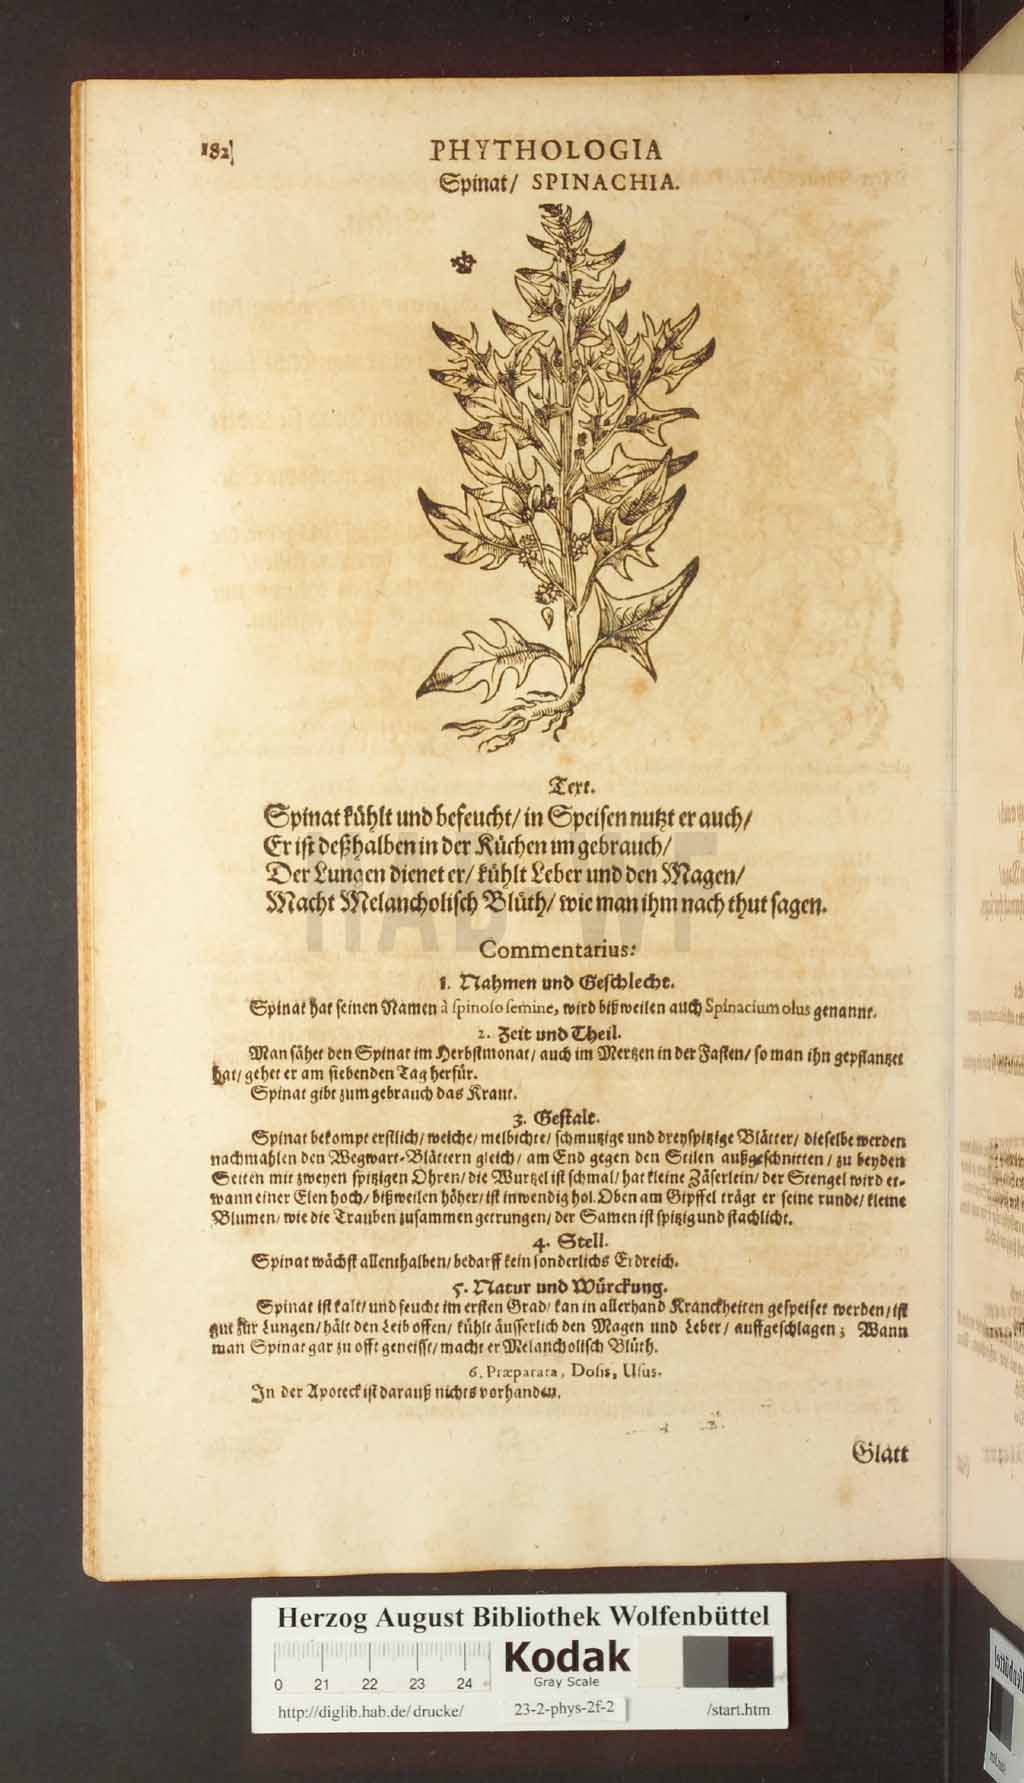 182
PHYTHOLOGIA
Spinat/ SPINACHIA.
Text.
Spinat kühlt und befeucht/ in Speisen nutzt er auch/
Er ist deßhalben in der Küchen im gebrauch/
Der Lungen dienet er/ kühlt Leber und den Magen/
Macht Melancholisch Blüth/ wie man ihm nach thut sagen.
Commentarius:
1. Nahmen und Geschlecht.
Spinat hat seinen Namen à spinoso semine, wird bißweilen auch Spinacium olus genannt.
2. Zeit und Theil.
Man sähet den Spinat im Herbstmonat/ auch im Mertzen in der Fasten/ so man ihn gepflantzet
hat/ gehet er am siebenden Tag herfür.
Spinat gibt zum gebrauch das Kraut.
3. Gestalt.
Spinat bekompt erstlich/ weiche/ melbichte/ schmutzige und dreyspitzige Blätter/ dieselbe werden
nachmahlen den Wegwart-Blättern gleich/ am End gegen den Stilen außgeschnitten/ zu beyden
Seiten mit zweyen spitzigen Ohren/ die Wurtzel ist schmal/ hat kleine Zäserlein/ der Stengel wird et-
wann einer Elen hoch/ bißweilen höher/ ist inwendig hol. Oben am Gipffel trägt er seine runde/ kleine
Blumen/ wie die Trauben zusammen getrungen/ der Samen ist spitzig und stachlicht.
4. Stell.
Spinat wächst allenthalben/ bedarff kein sonderlichs Erdreich.
5. Natur und Würckung.
Spinat ist kalt/ und feucht im ersten Grad/ kan in allerhand Kranckheiten gespeiset werden/ ist
gut für Lungen/ hält den Leib offen/ kühlt äusserlich den Magen und Leber/ auffgeschlagen; Wann
man Spinat gar zu offt geneisst/ macht er Melancholisch Blüth.
6. Præparata, Dosis, Usus.
In der Apoteck ist darauß nichts vorhanden.
Glatt
HAB WF
Herzog August Bibliothek Wolfenbüttel
Kodak
Gray Scale
0 21 22 23 24
http://diglib.hab.de/drucke/ 23-2-phys-2f-2 /start.htm